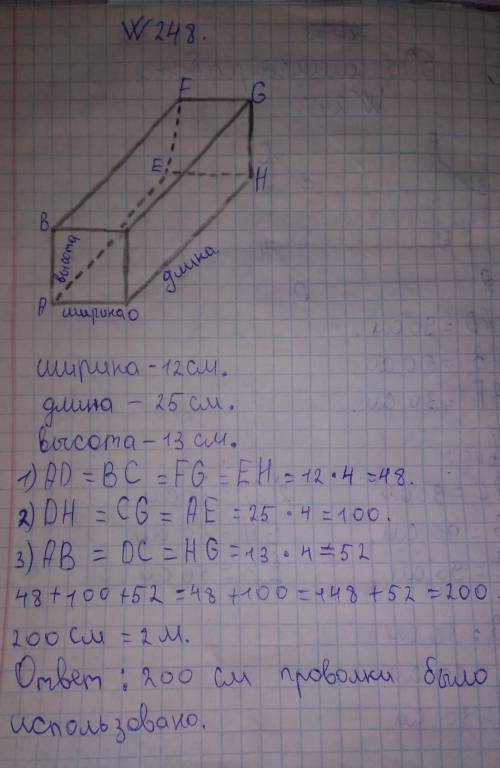 № 248.
F G
E H
B
высота
длина
A ширина D
ширина - 12 см.
длина - 25 см.
высота - 13 см.
1) AD = BC = FG = EH = 12 · 4 = 48.
2) DH = CG = AE = 25 · 4 = 100.
3) AB = DC = HG = 13 · 4 = 52
48 + 100 + 52 = 48 + 100 = 148 + 52 = 200.
200 см = 2 м.
Ответ : 200 см проволки было
использовано.